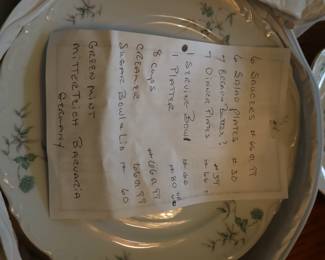 6 SAUCERS
6 SALAD PLATES # 30
7 BREAD & BUTTER
7 DINNER PLATES
1 SERVING BOWL # 60
1 PLATTER # 80
8 CUPS
CREAMER
SUGAR BOWL & LID # 60
GREEN MINT
MITTERTEICH BAVARIA
GERMANY